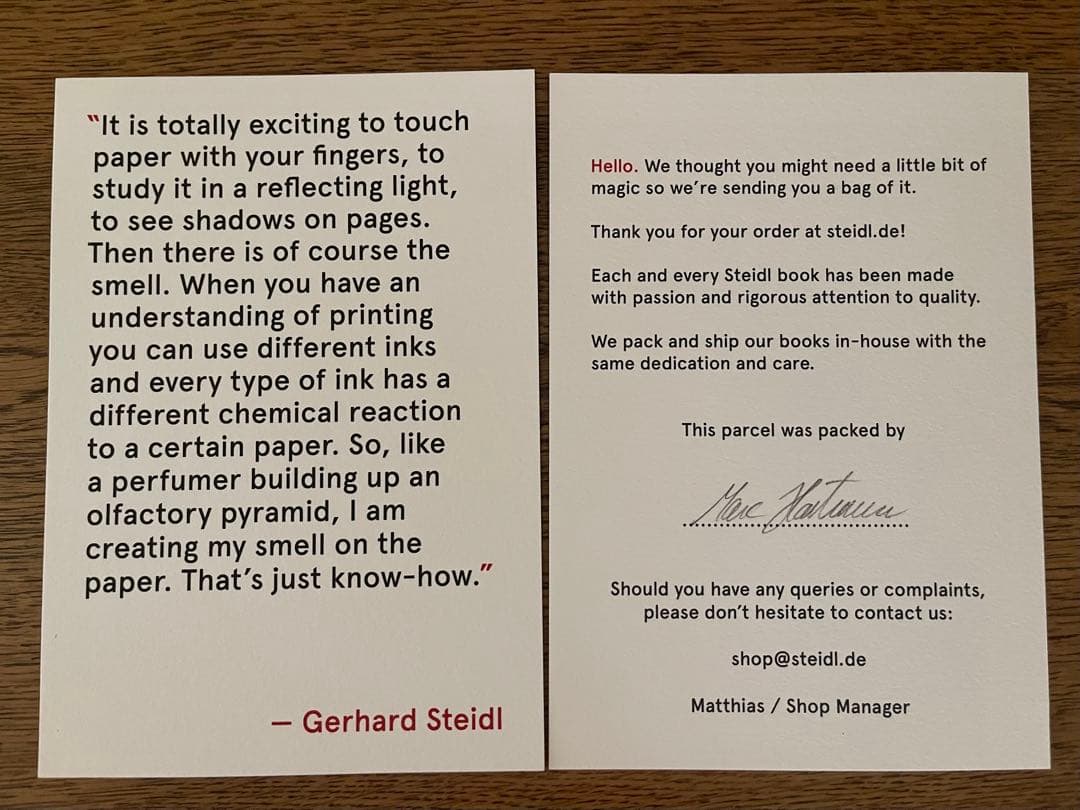 "It is totally exciting to touch
paper with your fingers, to
study it in a reflecting light,
to see shadows on pages.
Then there is of course the
smell. When you have an
understanding of printing
you can use different inks
and every type of ink has a
different chemical reaction
to a certain paper. So, like
a perfumer building up an
olfactory pyramid, I am
creating my smell on the
paper. That's just know-how."
— Gerhard Steidl
Hello. We thought you might need a little bit of
magic so we're sending you a bag of it.
Thank you for your order at steidl.de!
Each and every Steidl book has been made
with passion and rigorous attention to quality.
We pack and ship our books in-house with the
same dedication and care.
This parcel was packed by
Marc
Should you have any queries or complaints,
please don't hesitate to contact us:
shop@steidl.de
Matthias / Shop Manager